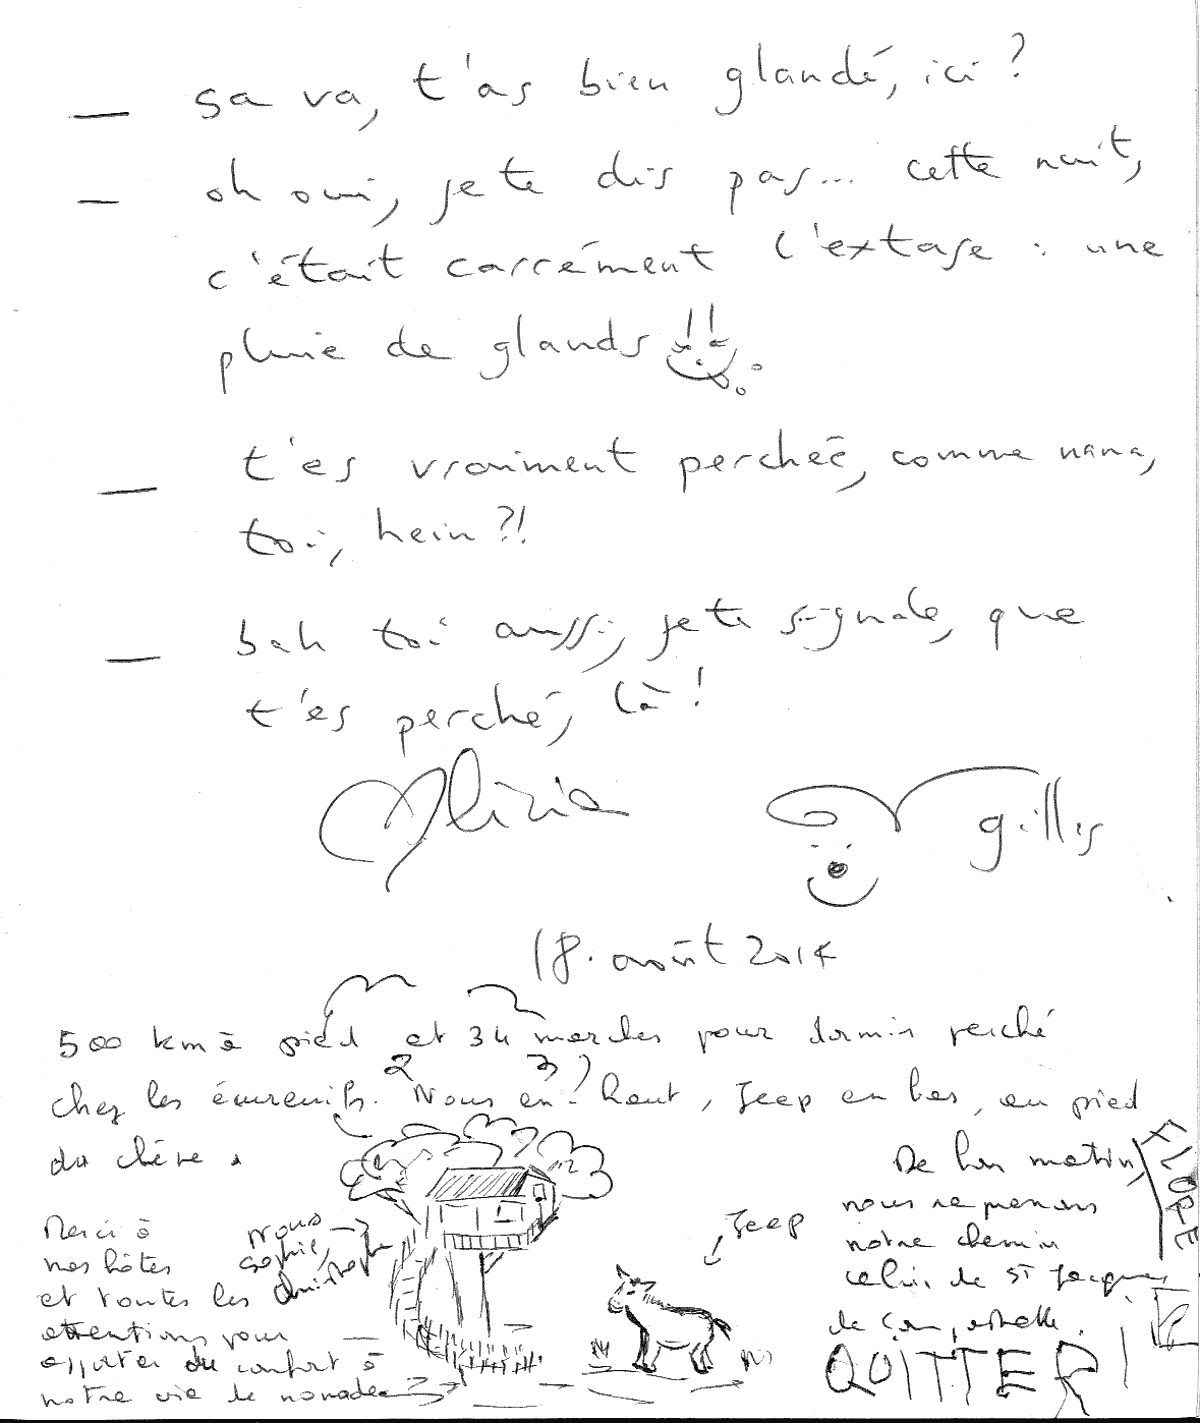 — sa va, t'as bien glandé, ici ?
— oh oui, je te dis pas... cette nuit,
c'était carrément l'extase : une
pluie de glands !!
— t'es vraiment perchée, comme nana,
toi, hein ?!
— bah toi aussi, je te signale, que
t'es perché, là !
gillis
18. août 2014
500 km à pied et 34 marches pour dormir perché
chez les écureuils. Nous en haut, Jeep en bas, au pied
du chêne.
Merci à
nos hôtes
et toutes les
attentions pour
apporter du confort à
notre vie de nomades
Nous
Sophie,
Christophe
Jeep
De bon matin,
nous reprenons
notre chemin
celui de St Jacques
de Compostelle.
FLORE
QUITTER !